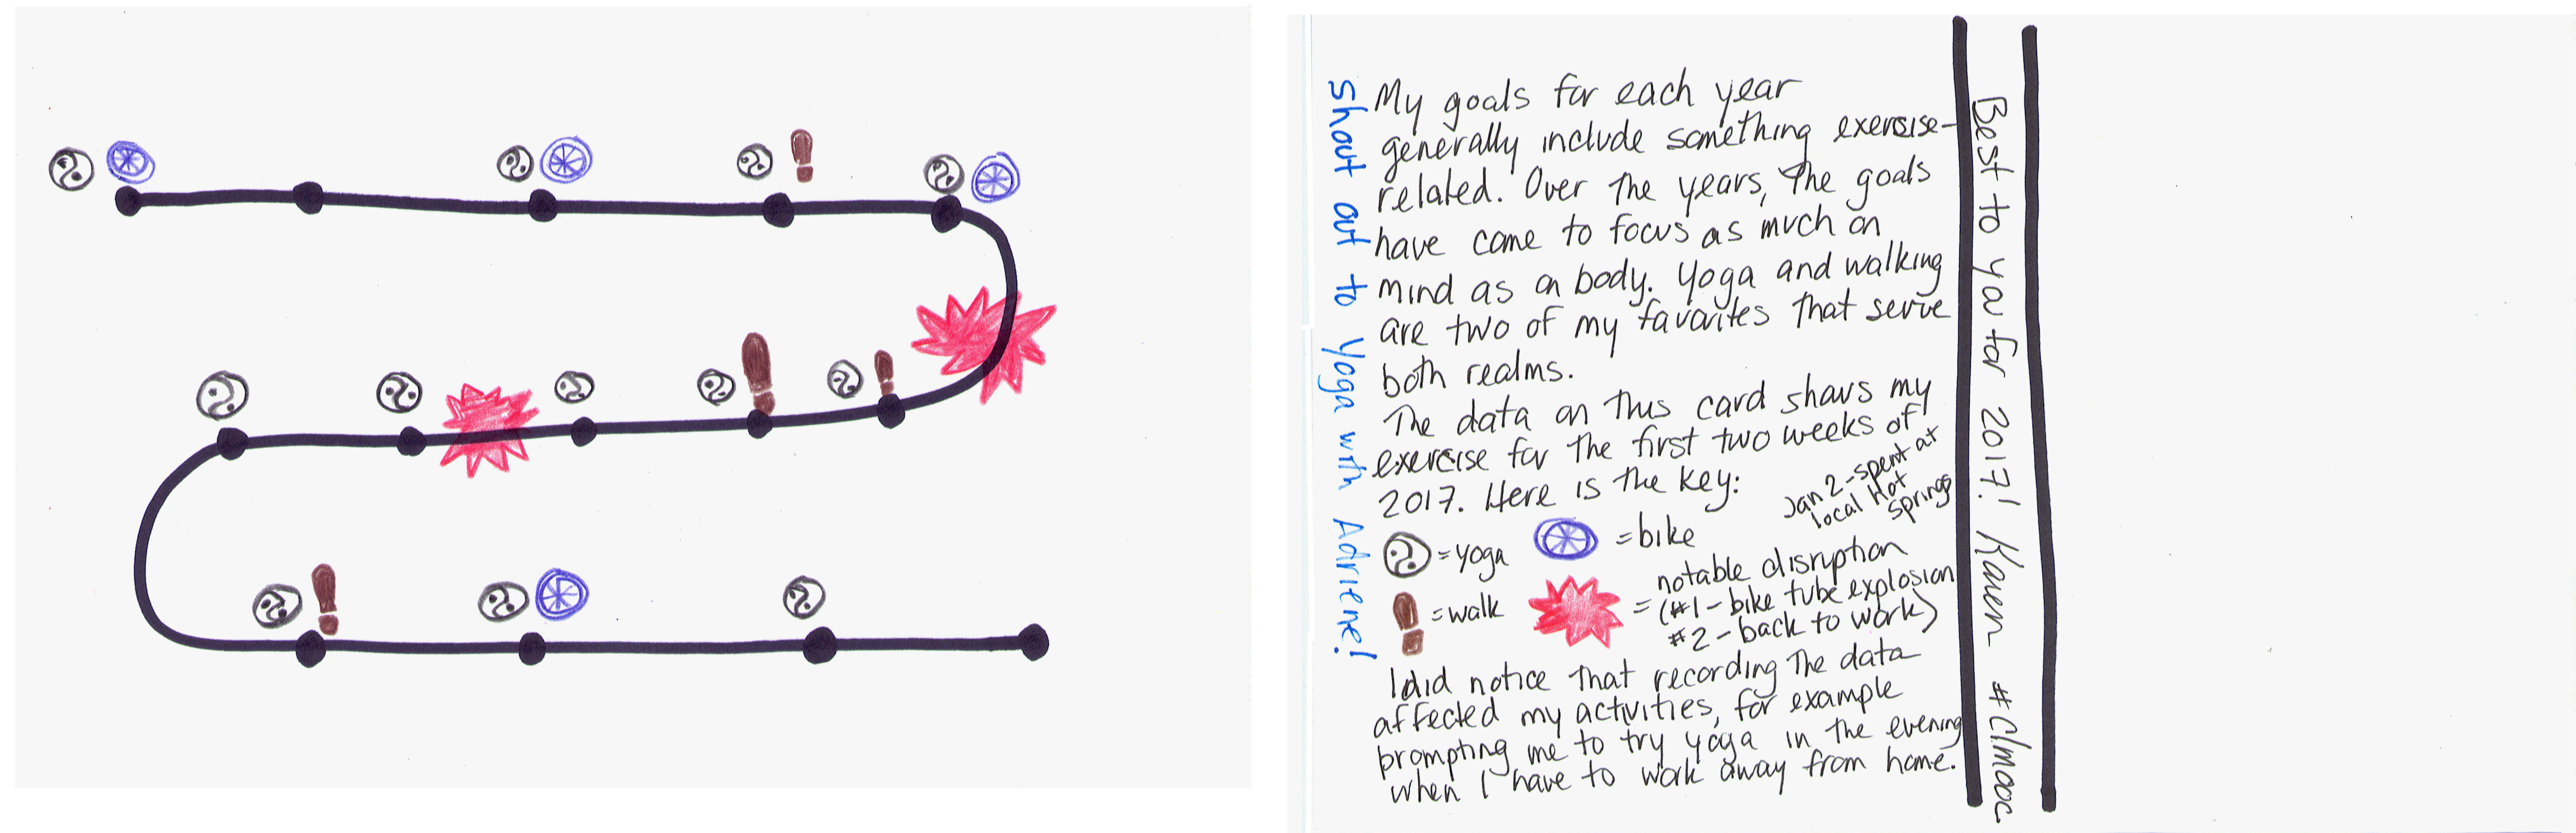 My goals for each year
generally include something exercise-
related. Over the years, the goals
have come to focus as much on
mind as on body. Yoga and walking
are two of my favorites that serve
both realms.
The data on this card shows my
exercise for the first two weeks of
2017. Here is the key:
Jan 2-spent at
local Hot
Springs
=yoga
=bike
=walk
= notable disruption
(#1-bike tube explosion
#2-back to work)
I did notice that recording the data
affected my activities, for example
prompting me to try yoga in the evening
when I have to work away from home.
Shout out to Yoga with Adriene!
Best to you for 2017! Karen #clmooc